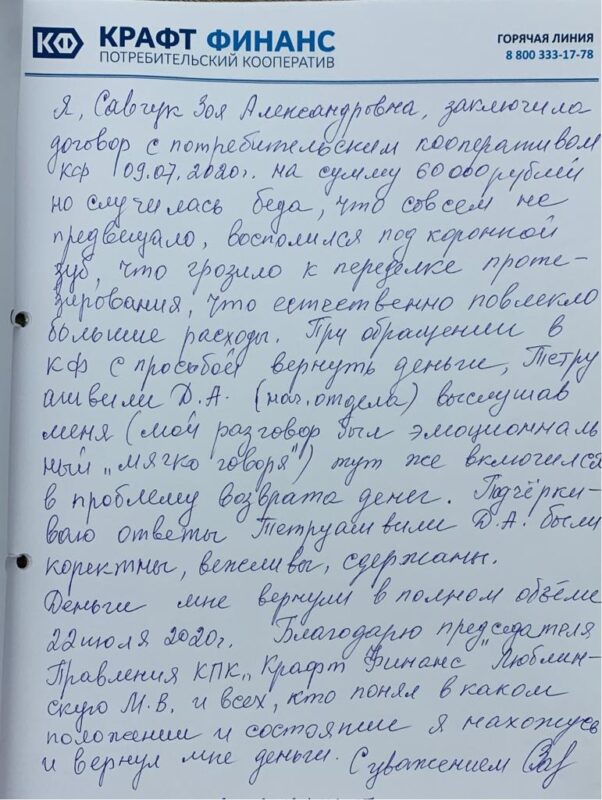 КФ
КРАФТ ФИНАНС
ПОТРЕБИТЕЛЬСКИЙ КООПЕРАТИВ
ГОРЯЧАЯ ЛИНИЯ
8 800 333-17-78
Я, Савчук Зоя Александровна, заключила
договор с потребительским кооперативом
КФ 09.07.2020г. на сумму 60 000 рублей
но случилась беда, что совсем не
предвещало, восполился под коронкой
зуб, что грозило к переделке проте-
зирования, что естественно повлекло
большие расходы. При обращении в
КФ с просьбой вернуть деньги, Тетру
ашвили Д.А. (нач. отдела) выслушав
меня (мой разговор был эмоциональ
ный „мягко говоря") тут же включился
в проблему возврата денег. Подчёрки-
ваю ответы Тетруашвили Д.А. были
коректны, вежливы, сдержаны.
Деньги мне вернули в полном объёме
22 июля 2020г. Благодарю председателя
Правления КПК „Крафт Финанс" Люблин-
скую М.В. и всех, кто понял в каком
положении и состоянии я нахожусь
и вернул мне деньги. С уважением